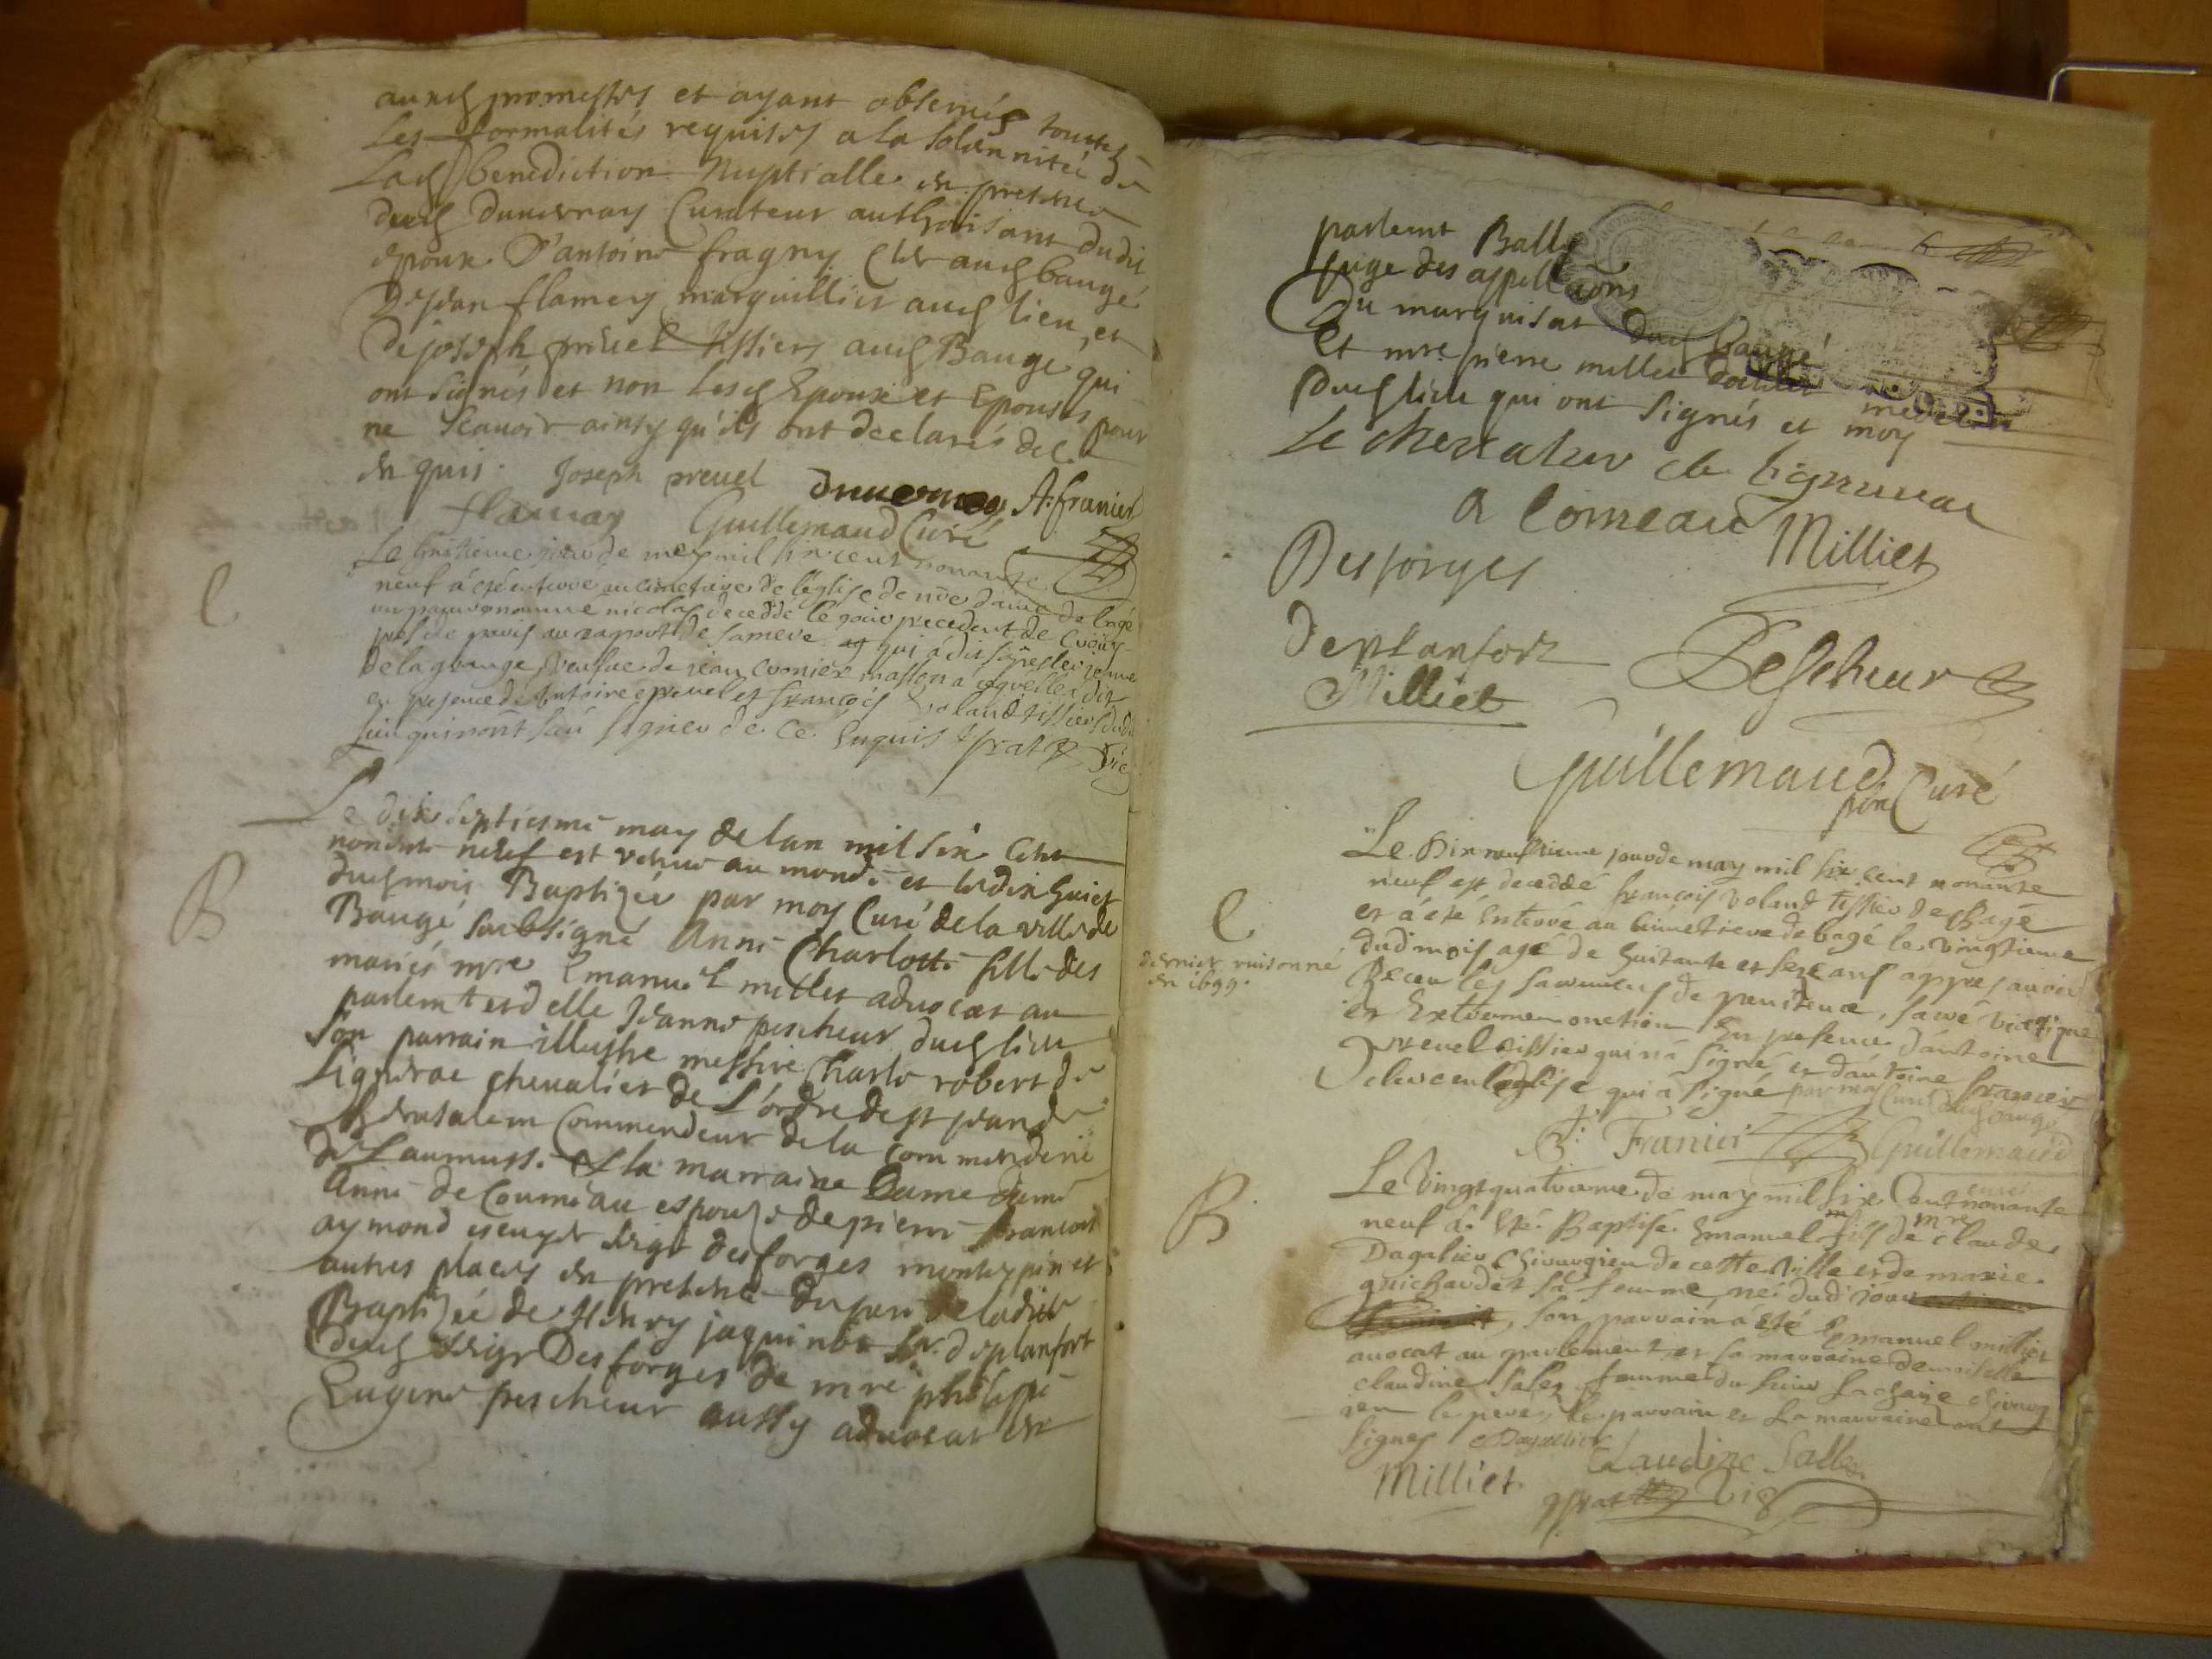 auxd promesses et ayant observés toutes
Les formalités requises a la solemnité de
Lad benediction Nuptialle en presence
dud duvernay Curateur authorisant dudit
epoux D'antoine fragny Clerc aud baugé
De Jean flamey marguillier aud lieu, et
de joseph prevel tissiers aud Baugé qui
ont signés et non lesd Epoux et Epouses pour
ne scavoir ainsy qu'ils ont declarés de ce
enquis. Joseph prevel duvernay A: franier
flamay Guillemaud Curé
C
Le huitieme jour de may mil six cent nonante
neuf à esté enterré au cimetiere de l'église de nre dame de bagé
un pauvre nommé nicolas decedde le jour precedent de
pres de paris au raport de sa mere qui à dit
De la grange veufve de jean cronier masson a
en presence de Antoine prevel et françois voland tissier dud
lieu qui n'ont sceu signer de ce Enquis Prat Vic
B
Le dix septiesme may de lan mil six Cent
nonante neuf est venue au monde et le dix huict
dud mois Baptizée par moy Curé de la ville de
Baugé soubsigné Anne Charlotte fille des
mariés mre Emanuel milliet advocat au
parlemt et delle Jeanne pescheur dud lieu
Son parrain illustre messire Charle robert de
Ligndrac chevalier de L'ordre de st jean de
Jherusalem Commendeur de la Commenderie
de Laumuss. Et la marraine Dame dame
Anne de Couméau espouse de pierre francois
aymond escuyer seigr desforges montespin et
autres places en presence du pere de ladite
Baptizée de Henry jaquinot sr. de planfort
dud seigr Desforges de mre philippe
Eugene pescheur aussy advocat en
parlemt Balle
juge des appellaons
Du marquisat dud baugé
Et mre pierre millet docteur medecin
dud lieu qui ont signés et moy
Le chevalier de lignerac
A comeau Milliet
Desforges
Deplanfort Pescheur
Milliet
Guillemaud
pbre Curé
C
dernier raisonné
en 1699.
Le Dix neufvieme jour de may mil six cent nonante
neuf est deceddé françois voland tissier de Bagé
et à été Enterré au cimetiere de bagé le vingtieme
dud mois agé de huitante et seze ans appres avoir
Receu les sacremens de penitence, sacré viatique
et Extreme onction En presence d'antoine
prevel tissier qui n'a signé et d'antoine franier
clerc en l'eglise qui à signé par moy Curé dud baugé
A: Franier Guillemaud
curé
B.
Le vingt quatrieme de may mil six Cent nonante
neuf à Eté Baptisé Emanuel fils de mre claude
Dagalier Chirurgien de cette ville et de marie
guichardet sa femme né dud jour
son parrain à Eté Emanuel milliet
avocat au parlement et sa marraine demoiselle
claudine sales femme du sieur lachaise chirurg
ien le pere, le parrain et la marraine ont
signes Dagallier
Milliet Claudine Salle
Prat Vic